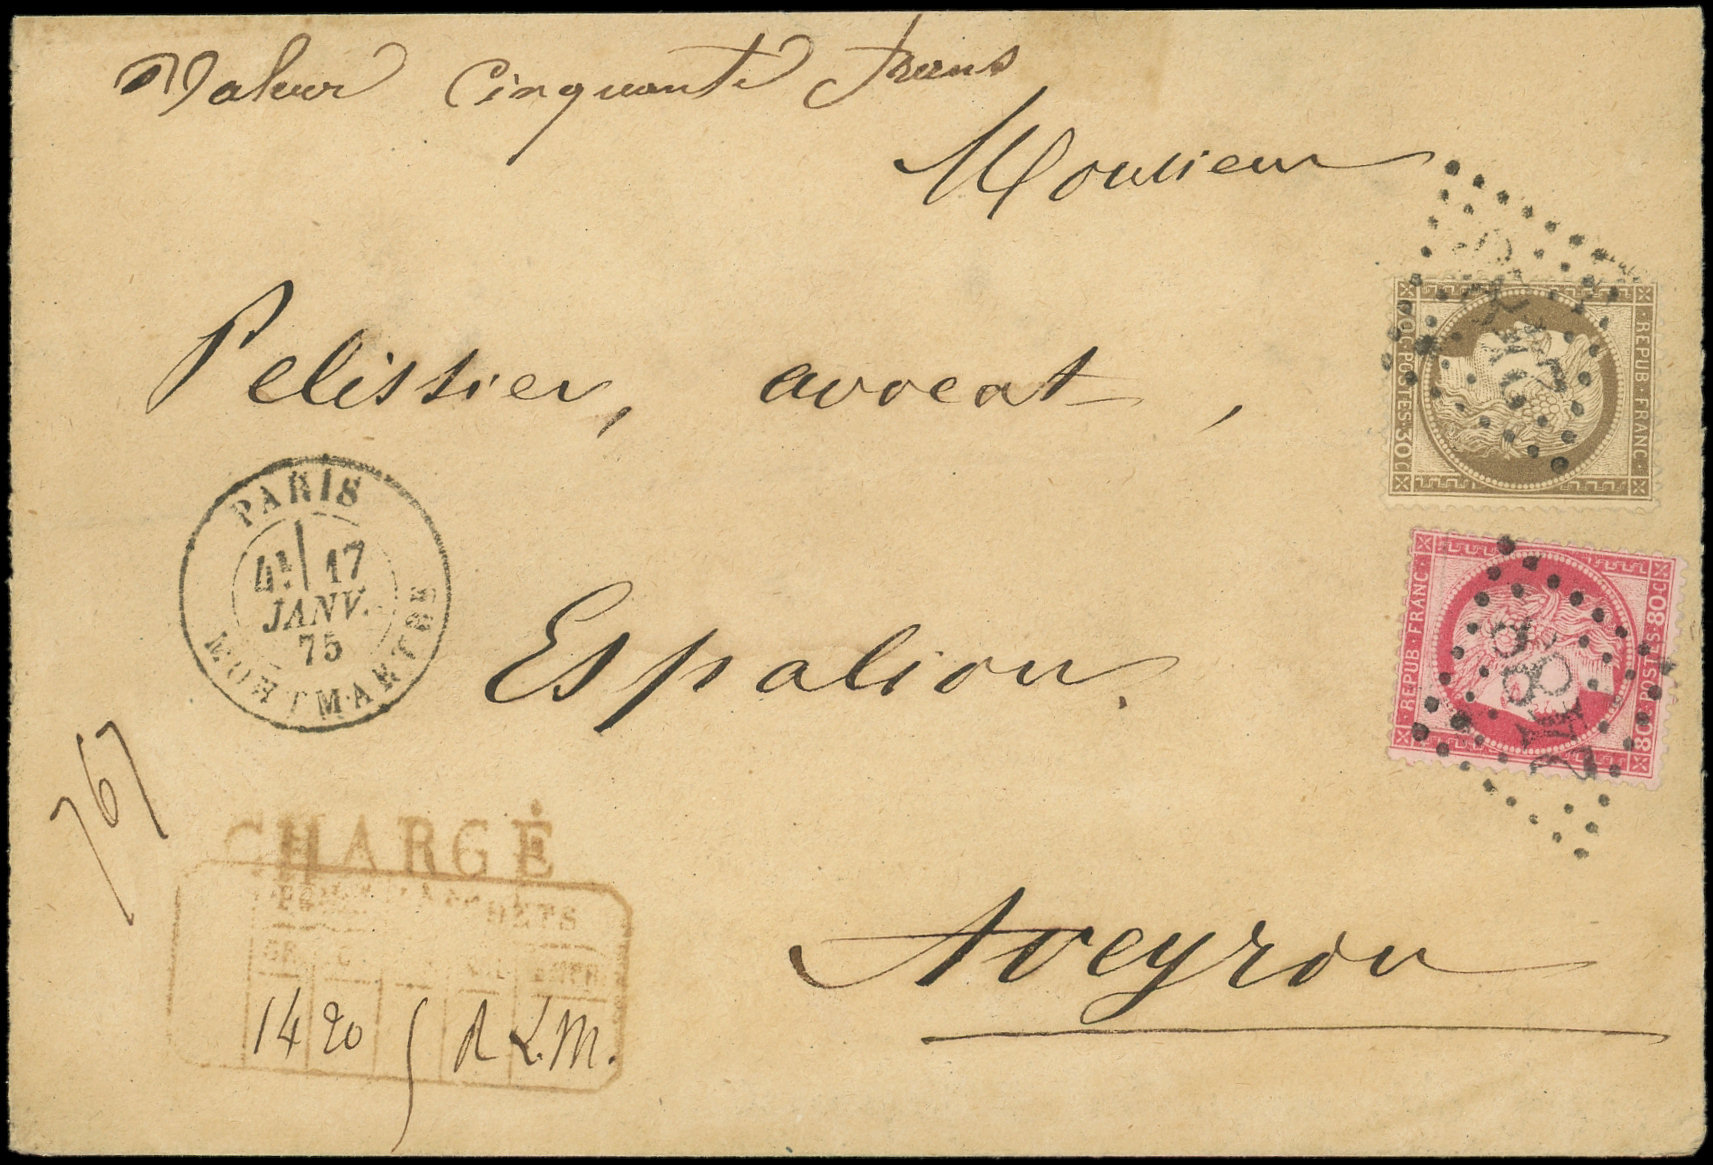 Valeur Cinquante francs
Monsieur
Pelissier, avocat,
Espalion.
Aveyron
PARIS
4E 17
JANV.
75
MONTMARTRE
767
CHARGÉ
14 20 5 R L.M.
REPUB·FRANC·
30C·POSTES·30C
REPUB·FRANC·
80C·POSTES·80C
2488